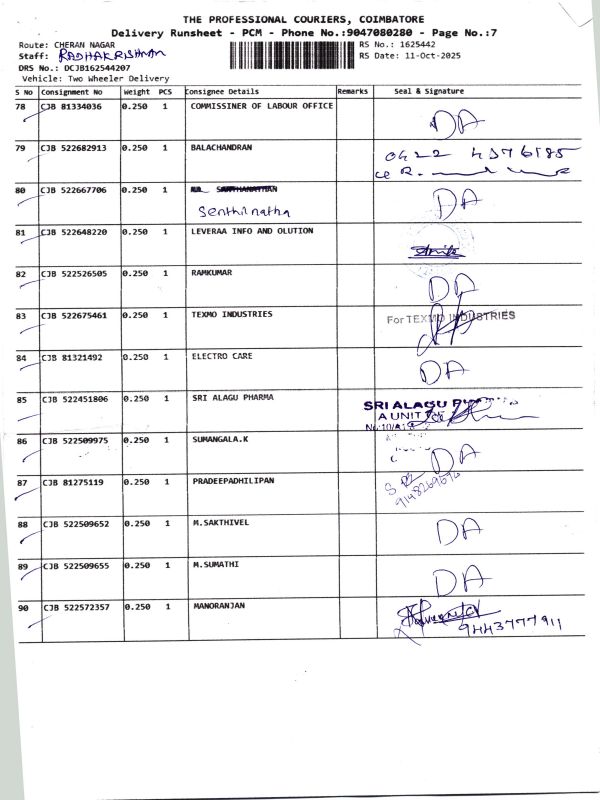 THE PROFESSIONAL COURIERS, COIMBATORE
Delivery Runsheet - PCM - Phone No.:9047080280 - Page No.:7
Route: CHERAN NAGAR RS No.: 1625442
Staff: RADHAKRISHNAN RS Date: 11-Oct-2025
DRS No.: DCJB162544207
Vehicle: Two Wheeler Delivery
S No Consignment No Weight PCS Consignee Details Remarks Seal & Signature
78 CJB 81334036 0.250 1 COMMISSINER OF LABOUR OFFICE DA
79 CJB 522682913 0.250 1 BALACHANDRAN
0422 4376185
80 CJB 522667706 0.250 1 DA
Senthilnatha
81 CJB 522648220 0.250 1 LEVERAA INFO AND OLUTION
82 CJB 522526505 0.250 1 RAMKUMAR DA
83 CJB 522675461 0.250 1 TEXMO INDUSTRIES For TEXMO INDUSTRIES
84 CJB 81321492 0.250 1 ELECTRO CARE DA
85 CJB 522451806 0.250 1 SRI ALAGU PHARMA SRI ALAGU
A UNIT
86 CJB 522509975 0.250 1 SUMANGALA.K DA
87 CJB 81275119 0.250 1 PRADEEPADHILIPAN
88 CJB 522509652 0.250 1 M.SAKTHIVEL DA
89 CJB 522509655 0.250 1 M.SUMATHI DA
90 CJB 522572357 0.250 1 MANORANJAN
9443777911